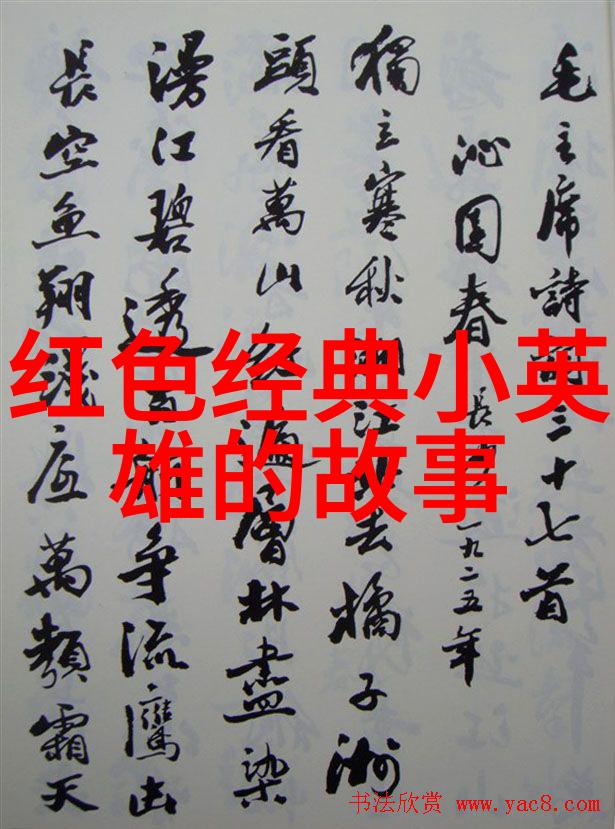 毛主席詩詞三十七首
沁園春 長沙 一九二五年
獨立寒秋湘江北去橘子洲
頭看萬山紅遍層林盡染
漫江碧透百舸争流鷹击
長空魚翔浅底萬類霜天
红色经典小英
雄的故事
书法欣赏 www.yac8.com